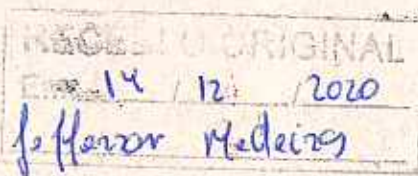 RECEBI O ORIGINAL
Em 14 / 12 / 2020
Jefferson Medeiros